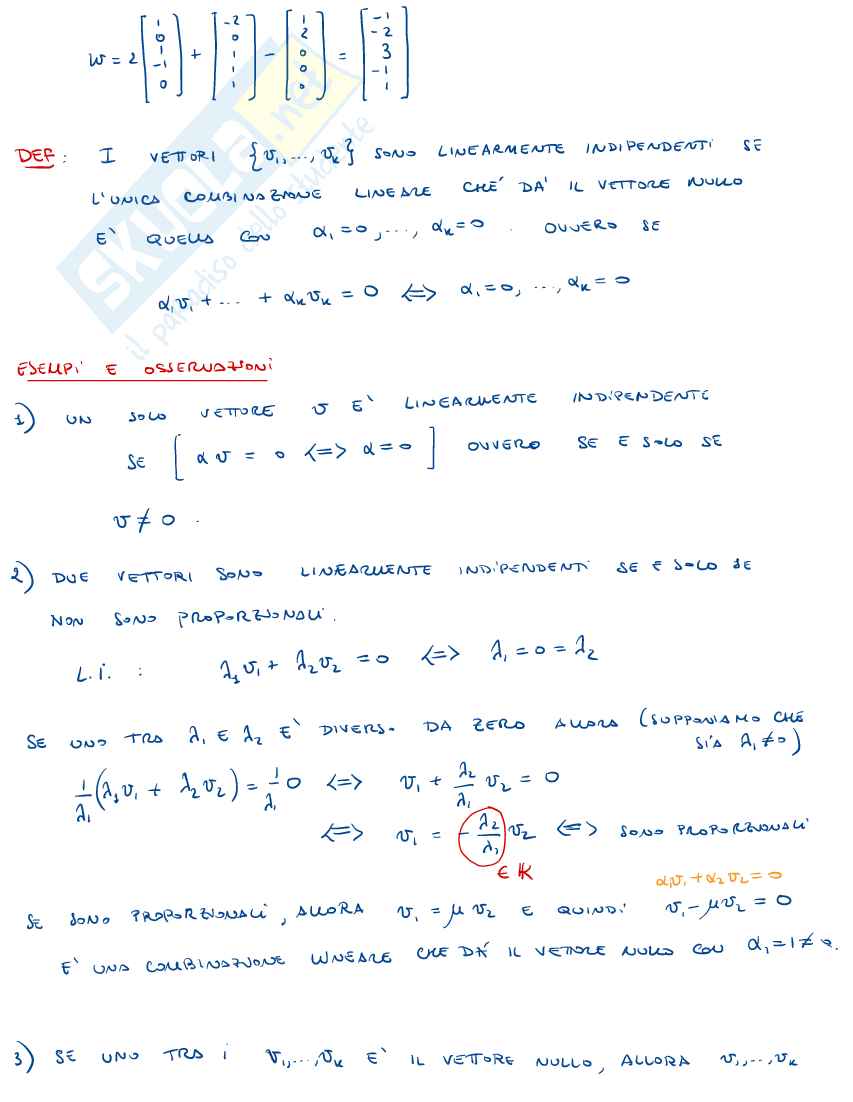 w = 2 [1 0 1 -1 0] + [-2 0 1 1 1] - [1 2 0 0 0] = [-1 -2 3 -1 1]
DEF: I VETTORI {v₁,...,vₖ} SONO LINEARMENTE INDIPENDENTI SE
L'UNICA COMBINAZIONE LINEARE CHE DA' IL VETTORE NULLO
E' QUELLA CON α₁=0,..., αₖ=0. OVVERO SE
α₁v₁ + ... + αₖvₖ = 0 <=> α₁=0, ..., αₖ=0
ESEMPI E OSSERVAZIONI
1) UN SOLO VETTORE v E' LINEARMENTE INDIPENDENTE
SE [αv = 0 <=> α=0] OVVERO SE E SOLO SE
v ≠ 0.
2) DUE VETTORI SONO LINEARMENTE INDIPENDENTI SE E SOLO SE
NON SONO PROPORZIONALI.
L.I.: λ₁v₁ + λ₂v₂ = 0 <=> λ₁=0=λ₂
SE UNO TRA λ₁ E λ₂ E' DIVERSO DA ZERO ALLORA (SUPPONIAMO CHE
SIA λ₁≠0)
1/λ₁ (λ₁v₁ + λ₂v₂) = 1/λ₁ 0 <=> v₁ + λ₂/λ₁ v₂ = 0
<=> v₁ = -λ₂/λ₁ v₂ <=> SONO PROPORZIONALI
∈ K
αv₁+α₂v₂=0
SE SONO PROPORZIONALI, ALLORA v₁ = μv₂ E QUINDI v₁-μv₂ = 0
E' UNA COMBINAZIONE LINEARE CHE DA' IL VETTORE NULLO CON α₁=1≠0.
3) SE UNO TRA I v₁,...,vₖ E' IL VETTORE NULLO, ALLORA v₁,...,vₖ
SKUOLA.net
il paradiso dello studente